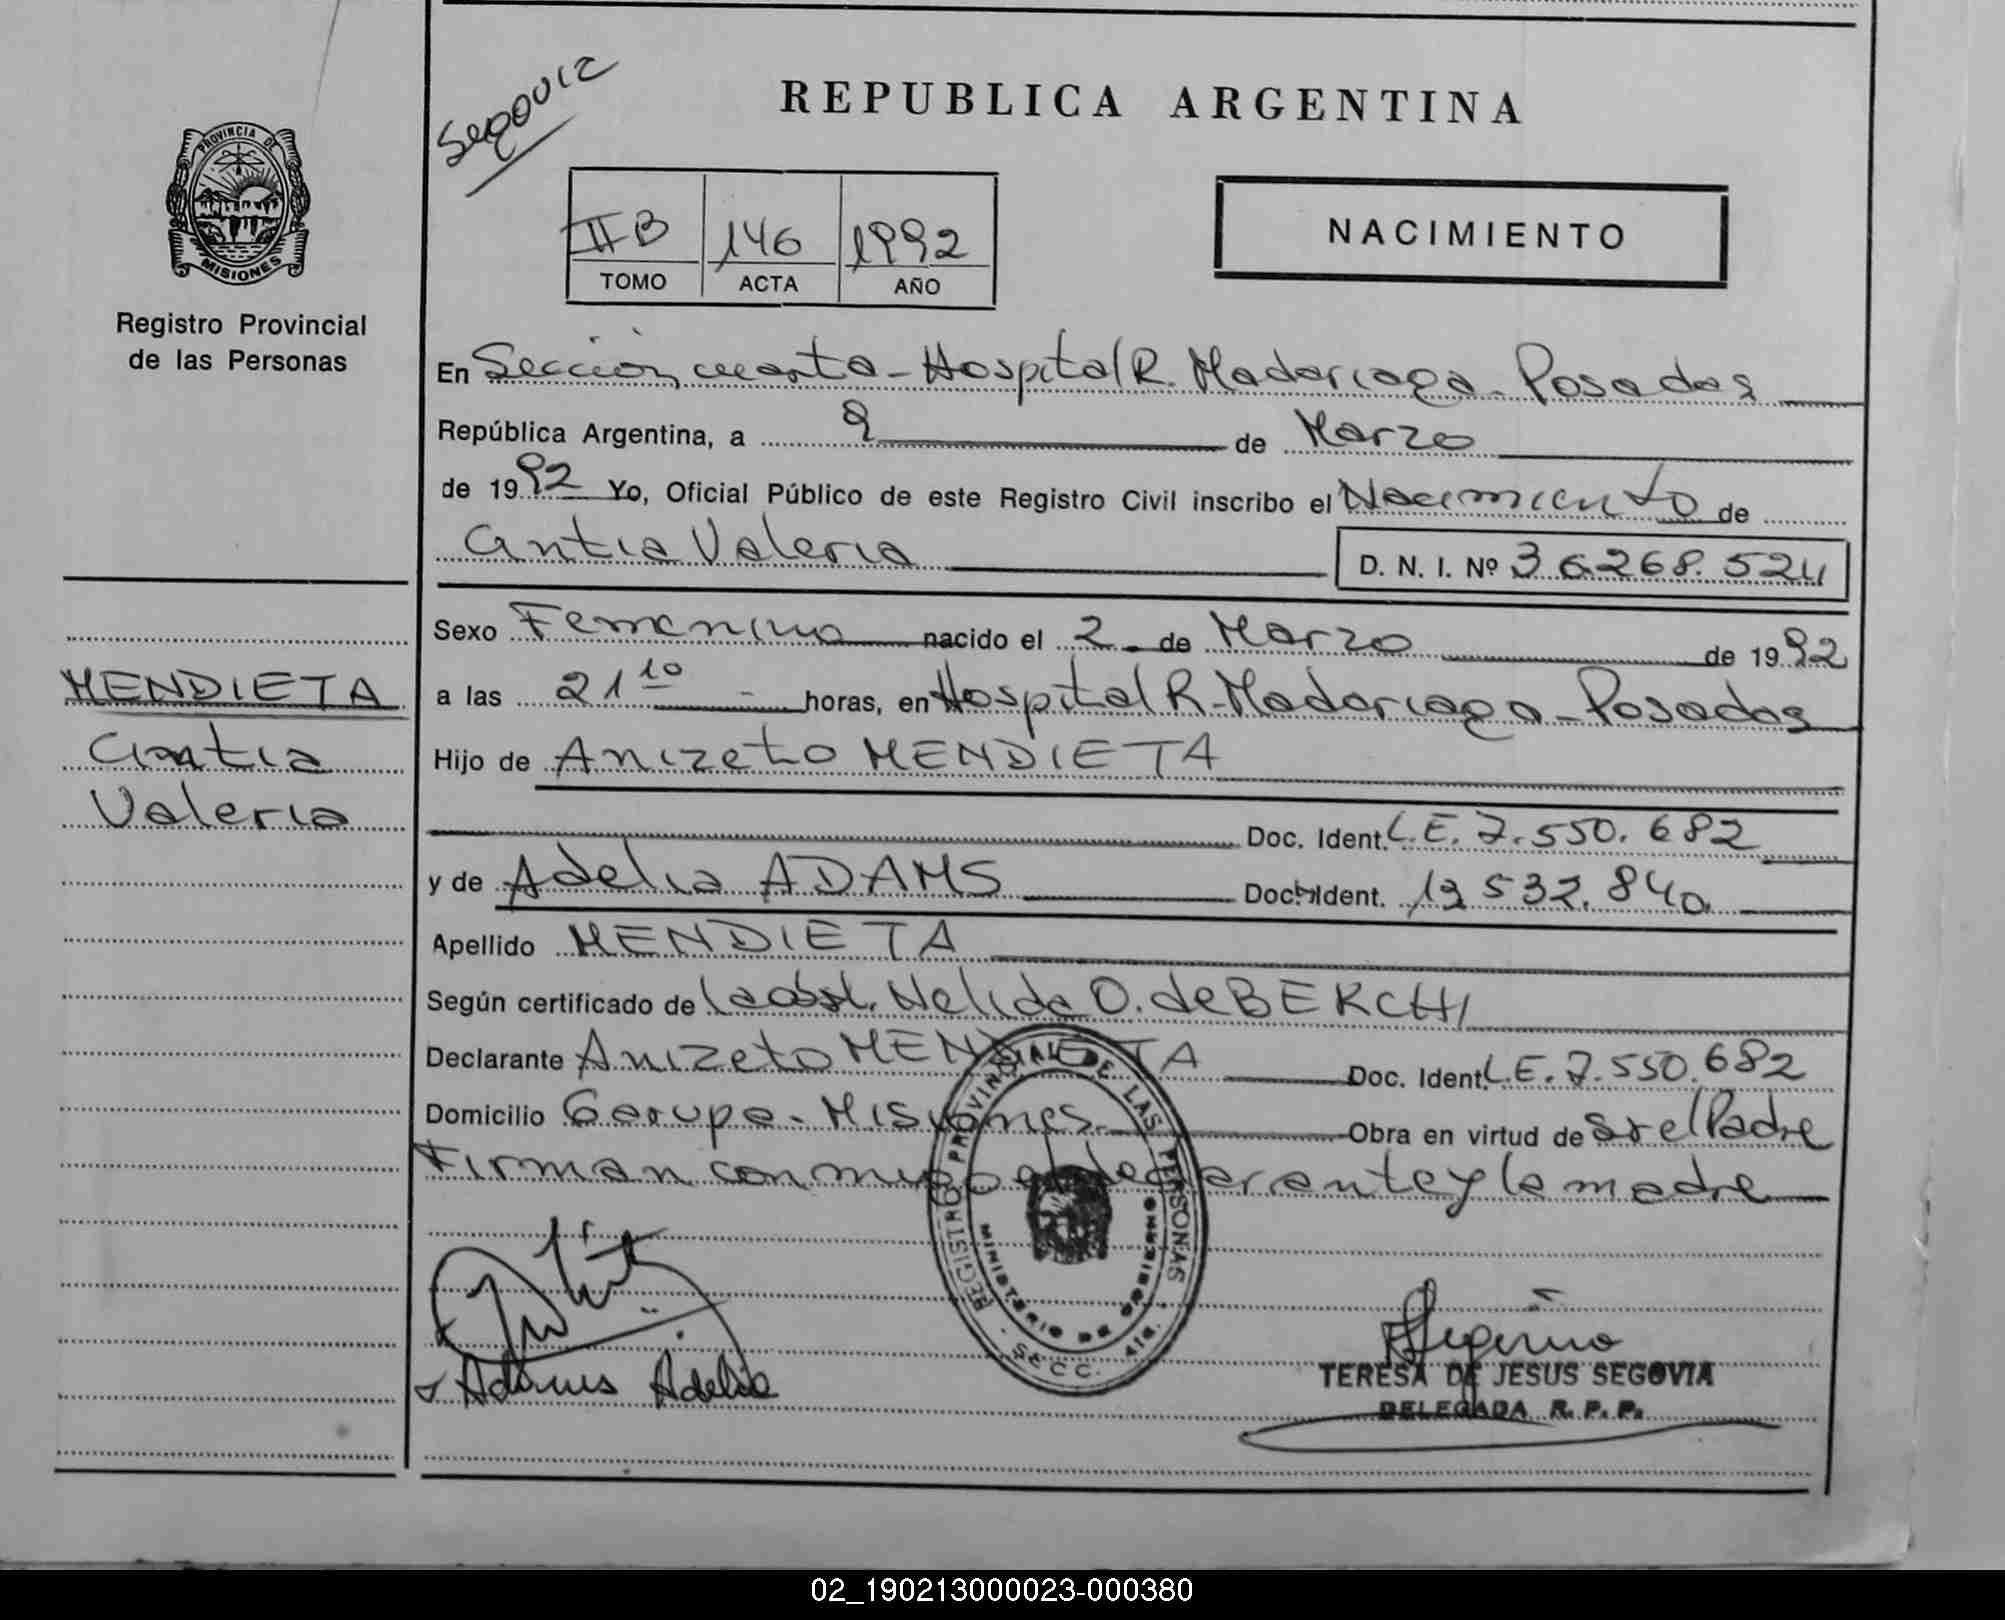 Segovia
REPUBLICA ARGENTINA
PROVINCIA DE
MISIONES
Registro Provincial
de las Personas
II B 146 1992
TOMO ACTA AÑO
NACIMIENTO
En Sección cuarta - Hospital R. Madariaga - Posadas
República Argentina, a 9 de Marzo
de 1992 Yo, Oficial Público de este Registro Civil inscribo el Nacimiento de
Cintia Valeria D. N. I. Nº 36.268.524
Sexo Femenino nacido el 2 de Marzo de 1992
a las 21 10 horas, en Hospital R. Madariaga - Posadas
Hijo de Anizeto MENDIETA
Doc. Ident. L.E. 7.550.682
y de Adelia ADAMS Doc. Ident. 13.532.840
Apellido MENDIETA
Según certificado de la obst. Nelida O. de BERCHI
Declarante Anizeto MENDIETA Doc. Ident. L.E. 7.550.682
Domicilio Garupa - Misiones Obra en virtud de Ser el Padre
Firman conmigo el declarante y la madre
MENDIETA
Cintia
Valeria
REGISTRO PROVINCIAL DE LAS PERSONAS
MINISTERIO DE GOBIERNO
SECC. 4ta.
Adams Adelia
TERESA DE JESUS SEGOVIA
DELEGADA R. P. P.
02_190213000023-000380